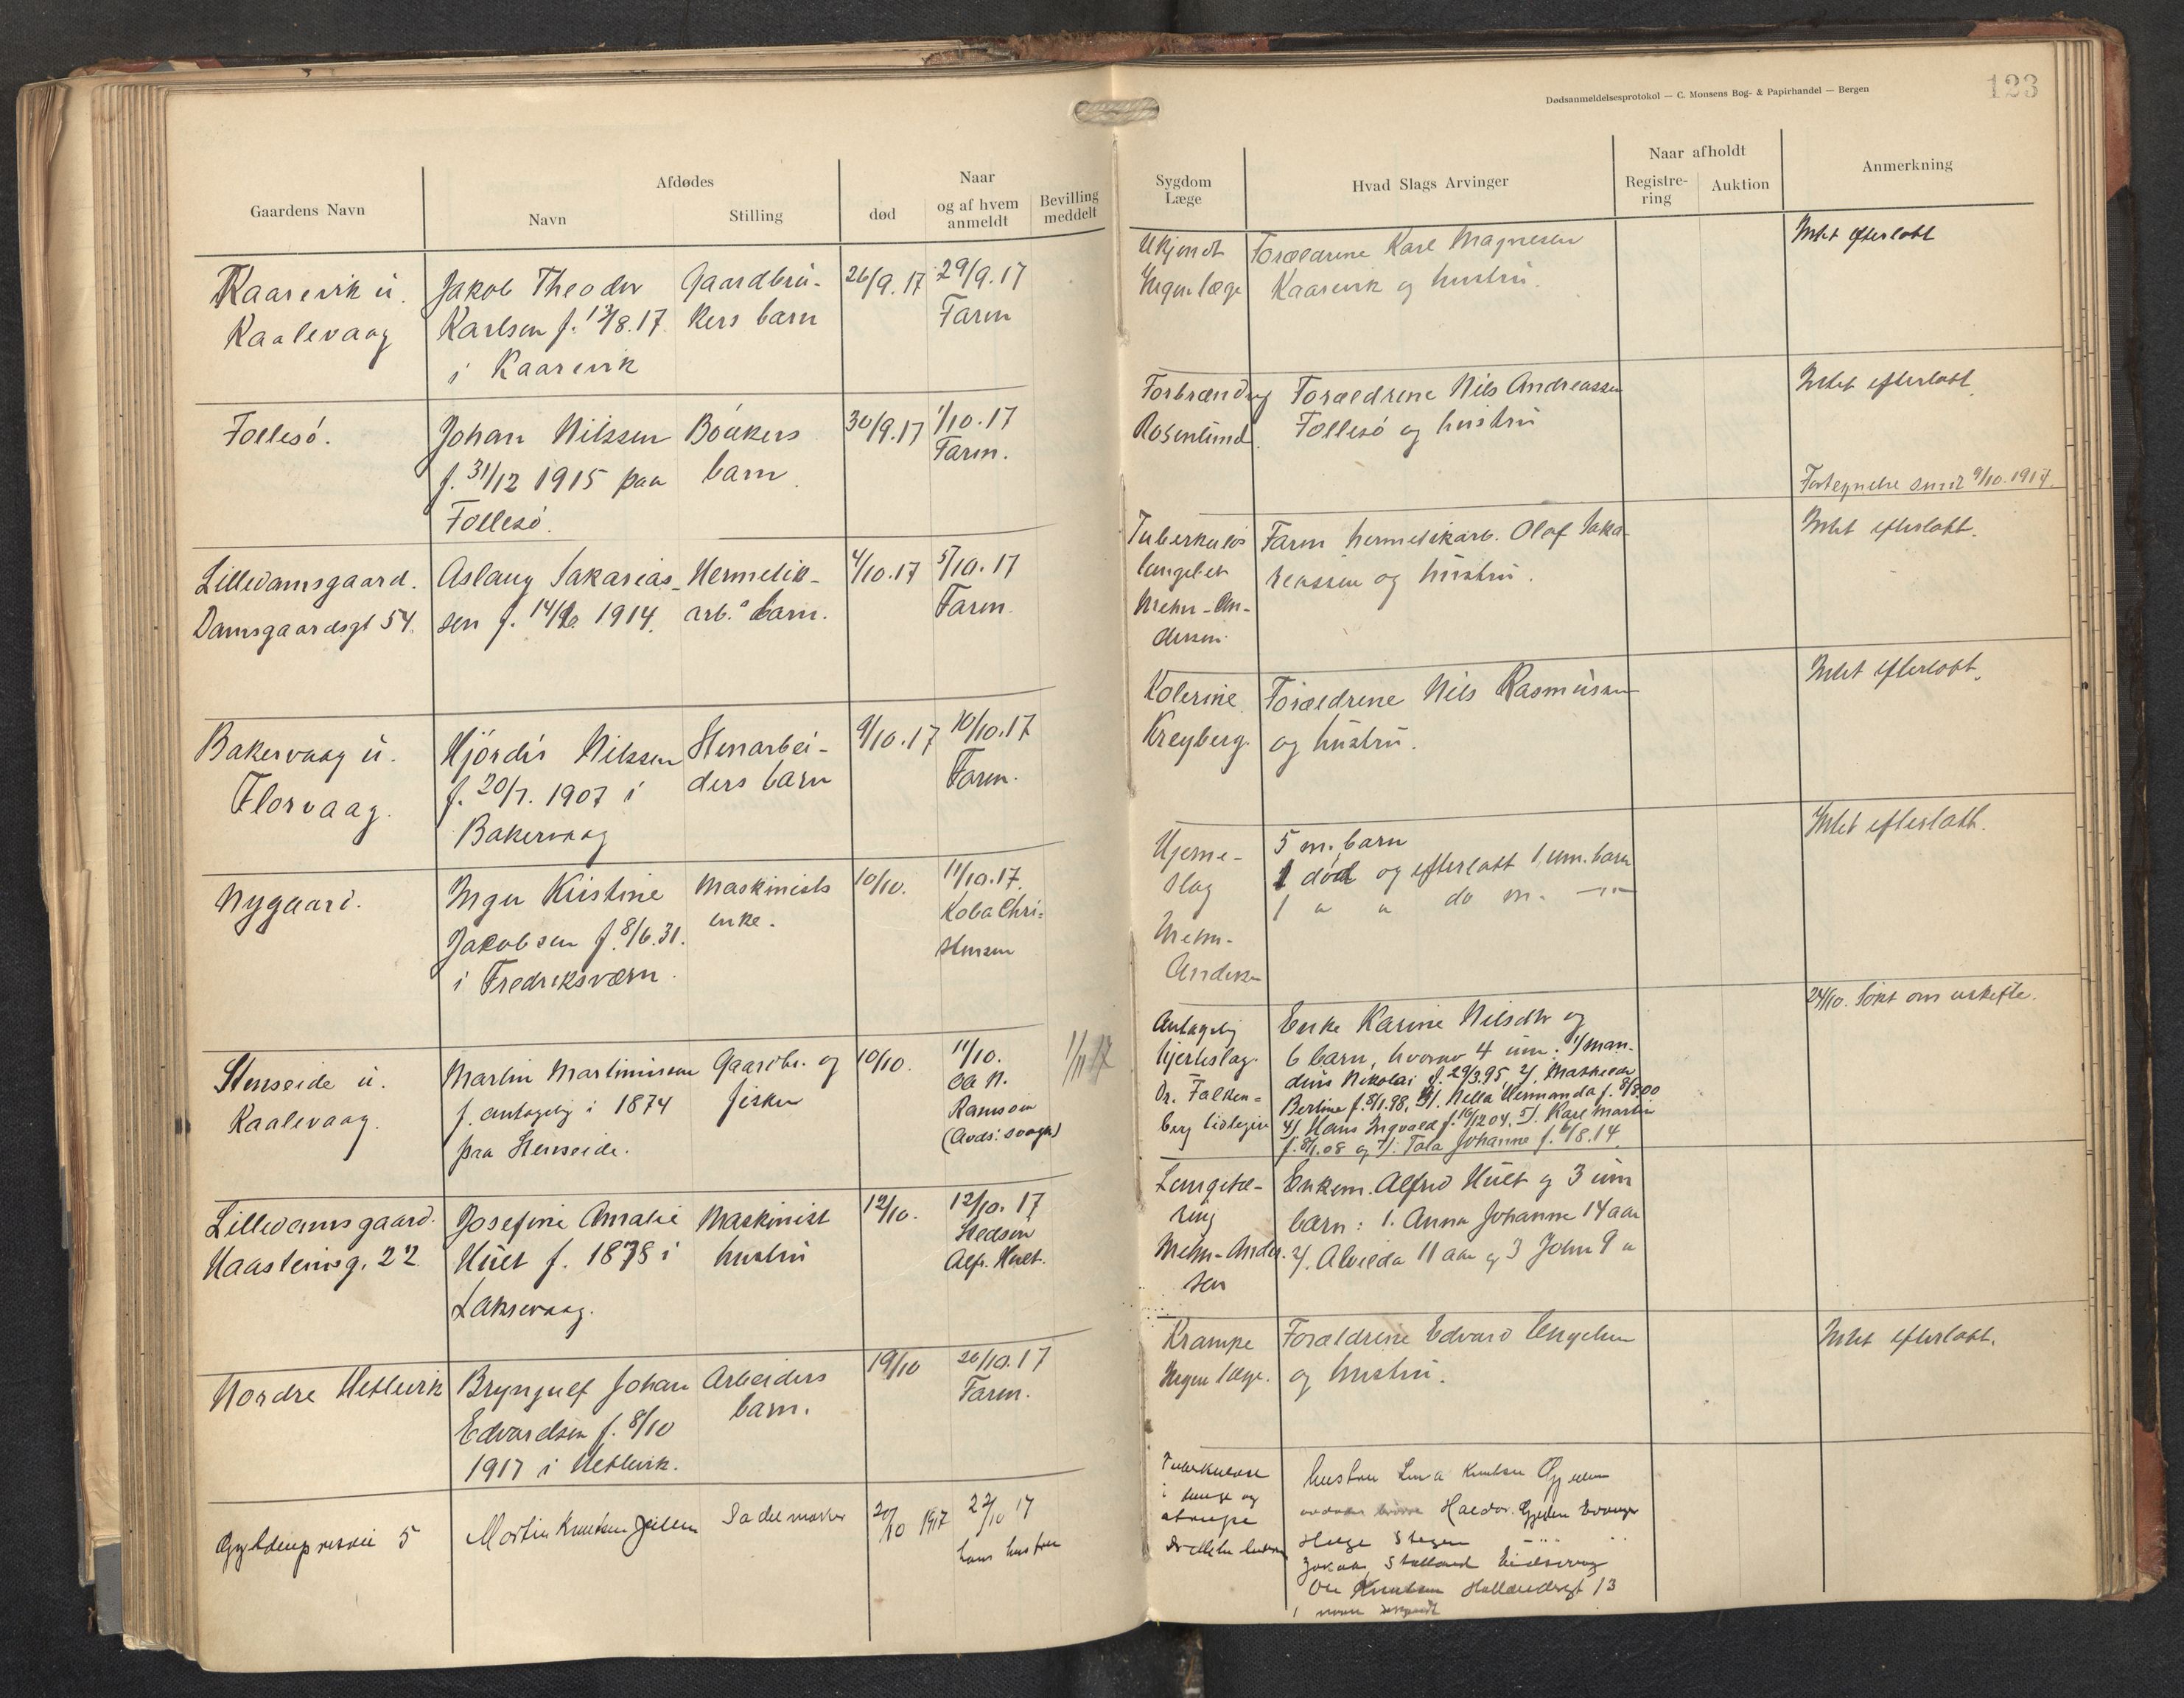 Dødsanmeldelsesprotokol — C. Monsens Bog- & Papirhandel — Bergen
123
Gaardens Navn
Afdødes
Navn
Stilling
Naar
død
og af hvem anmeldt
Bevilling meddelt
Sygdom
Læge
Hvad Slags Arvinger
Naar afholdt
Registrering
Auktion
Anmerkning
Kaarevik u.
Kaalevaag
Jakob Theodor
Karlsen f. 13/8.17.
i Kaarevik
Gaardbru-
kers barn
26/9.17
29/9.17
Faren
Ukjendt
Ingen læge
Forældrene Karl Magnesen
Kaarevik og hustru.
Intet efterlatt
Follesö.
Johan Nilssen
f. 31/12 1915 paa
Follesö.
barn
30/9.17
1/10.17
Faren.
Forbrænding
Rosenlund.
Forældrene Nils Andreassen
Follesö og hustru
Intet efterlatt
Lilledamsgaard.
Damsgaardsgt 54.
Aslaug Sakarias-
sen f. 1914.
Hermetik-
arb.s barn.
4/10.17
5/10.17
Faren.
Tuberkulös
Mehn-An-
dersen.
Faren hermetikarb. Olaf Saka-
reassen og hustru.
Intet efterlatt.
Bakervaag u.
Florvaag.
Hjördis Nilssen
f. 20/7. 1907 i
Bakervaag
Stenarbei-
ders barn
9/10.17
10/10.17
Faren.
Kolerine
Kreyberg.
Forældrene Nils Rasmussen
og hustru.
Intet efterlatt.
Nygaard.
Inger Kristine
Jakobsen f. 8/6.31.
i Fredriksværn.
Maskinists
enke.
10/10.
11/10.17.
Chri-
stensen
Hjerne-
slag
Mehn-
Andersen
5 m. barn
1 död og efterlatt 1 um. barn
1 " " do m. —"—
Intet efterlatt.
Stenseide u.
Kaalevaag.
Martin Martinussen
f. antagelig i 1874
paa Stenseide.
Gaardbr. og
fisker
10/10.
11/10.
Ole N.
(Avds. svoger)
1/11 17
Antagelig
hjerteslag.
Dr. Falken-
berg
Enke Karine Nilsdtr og
6 barn, hvorav 4 um: 1/ Man-
dius Nikolai f. 29/3.95, 2/. Mathilde
Berline f. 8/1.98, 3/. Nella Hermanda f. 8/8.00
4/ Hans Ingvald f. 16/12 04. 5/. Karl Martin
f. 8/1.08 og 7/. Tala Johanne f. 6/8.14
24/10. Sökt om uskifte.
Lilledamsgaard.
22.
Josefine Amalie
Hult f. 1878 i
Laksevaag.
Maskinist
hustru
12/10.
12/10. 17
Alfr. Hult.
Lungetæ-
ring
Mehn-Ander-
sen
Enkem. Alfred Hult og 3 um
barn: 1. Anna Johanne 14 aar
2/. Alvilda 11 aar og 3 John 9 "
Nordre Hetlevik
Bryngulf Johan
Edvardsen f. 8/10
1917 i Hetlevik.
Arbeiders
barn.
19/10
20/10.17
Faren.
Krampe
Ingen læge.
Forældrene Edvard
og hustru.
Intet efterlatt.
5
Martin Knutsen
Sadelmaker
20/10 1917
22/10 17
hans hustru
Tuberkulose
i lunge og
strupe
hustru Knutsen
Haldor
Helge
Ole Knutsen 13